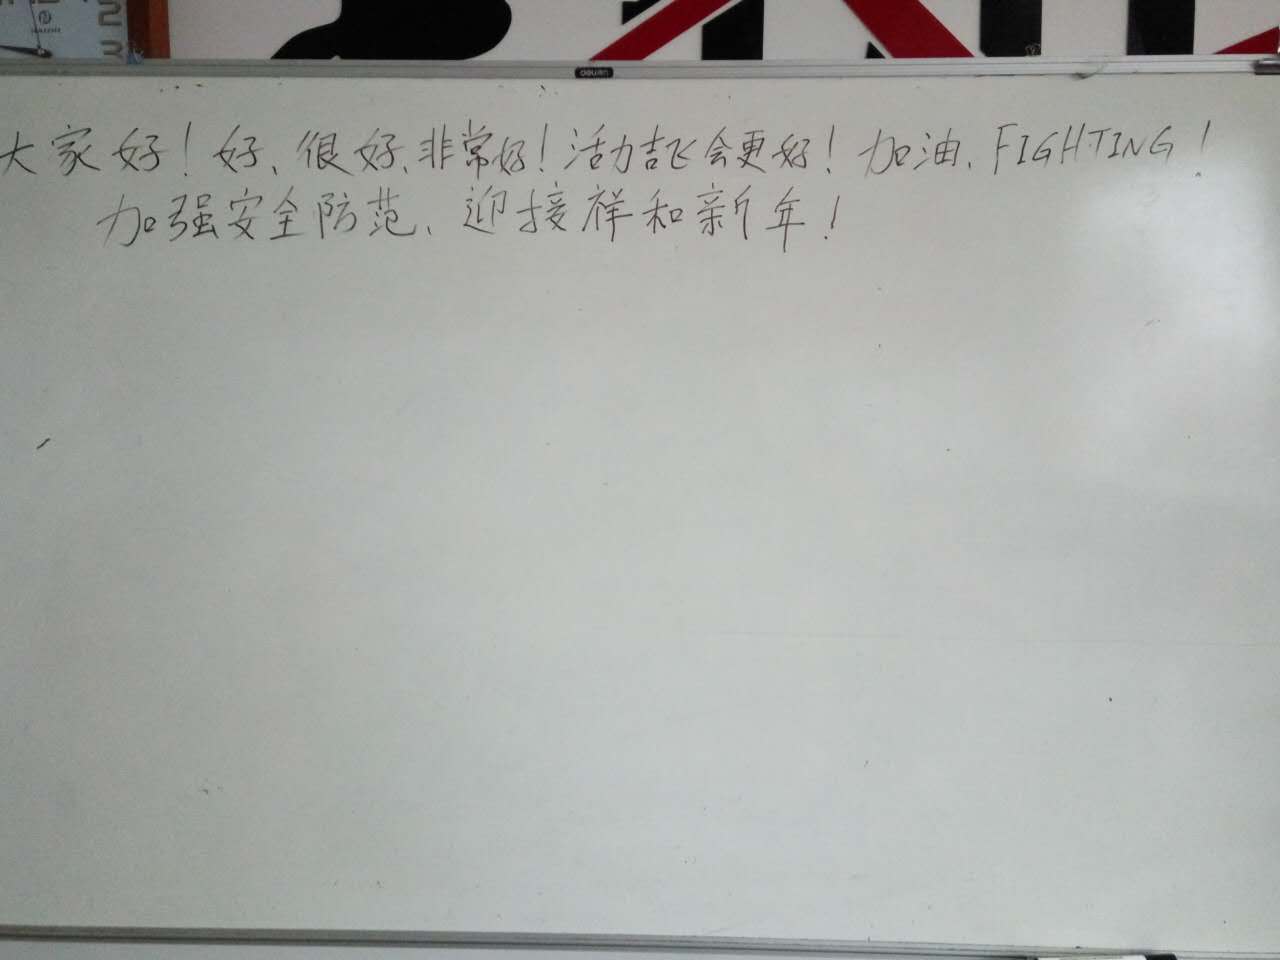 deli
大家好！好、很好、非常好！活力吉飞会更好！加油、FIGHTING！
加强安全防范、迎接祥和新年！